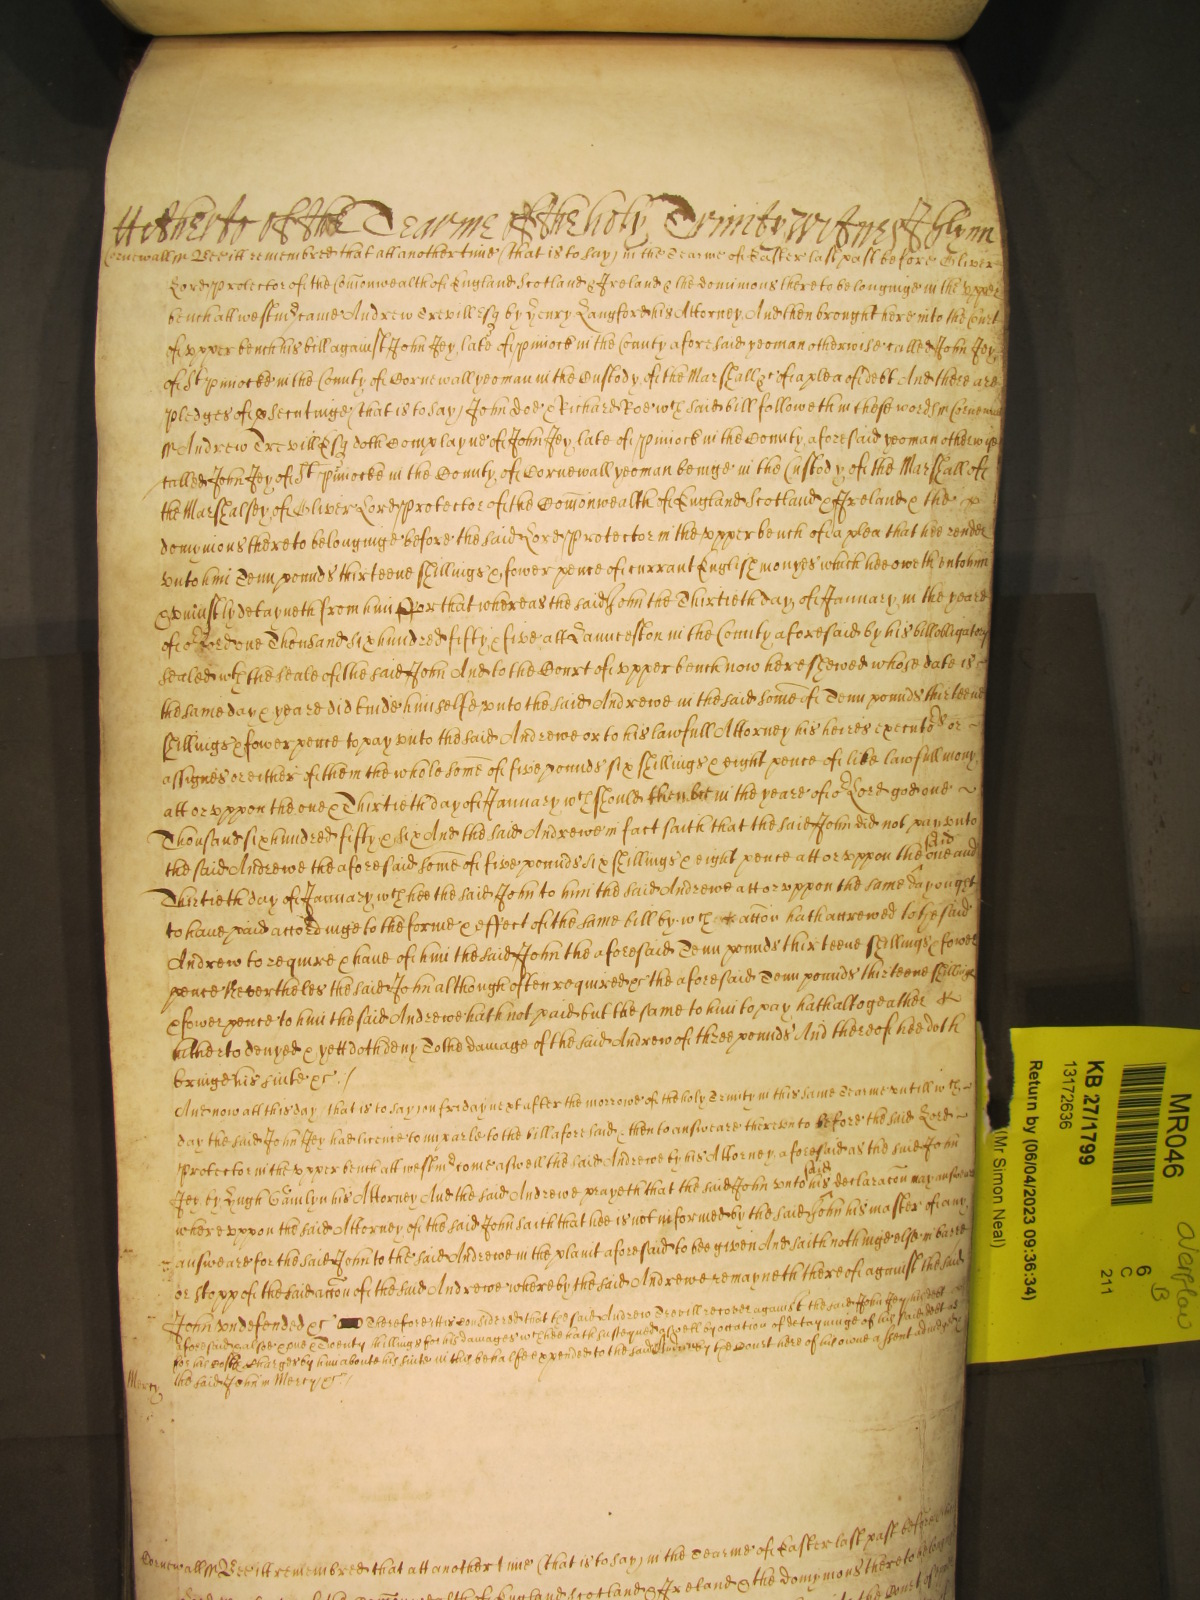 Hitherto of the Tearme of the holy Trinity Witnes J Glynn
Cornewall ss Bee itt remembred that att another time (that is to say) in the Tearme of Easter last past before Oliver
Lord Protector of the Comonwealth of England Scotland & Ireland & the dominions thereto belonginge in the upper
bench att westmr came Andrew Trevill Esq by Henry Langford his Attorney And then brought here into the Court
of upper bench his bill against John Jey late of Pinnock in the County aforesaid yeoman otherwise called John Jey
of St Pinnocke in the County of Cornewall yeoman in the Custody of the Marshall &c of a plea of debt And there are
pledges of prosecutinge, that is to say, John Doe & Richard Roe wch said bill followeth in these words ss Cornewall
ss Andrew Trevill Esq doth Complayne of John Jey late of Pinnock in the County aforesaid yeoman otherwise
called John Jey of St Pinnocke in the County of Cornewall yeoman beinge in the Custody of the Marshall of
the Marshalsey of Oliver Lord Protector of the Comonwealth of England Scotland & Ireland & the
dominions thereto belonginge before the said Lord Protector in the upper bench of a plea that hee render
unto him Tenn pounds thirteene shillings & fower pence of currant English monyes which hee oweth unto him
& uniustly detayneth from him For that whereas the said John the Thirtieth day of January in the yeare
of or Lord one Thousand six hundred fifty & five att Launceston in the County aforesaid by his bill obligatory
sealed wth the seale of the said John And to the Court of upper bench now here shewed whose date is
the same day & yeare did binde himselfe unto the said Andrewe in the said some of Tenn pounds thirteene
shillings & fower pence to pay unto the said Andrewe or to his lawfull Attorney his heires executors or
assignes or either of them the whole some of five pounds six shillings & eight pence of like lawfull mony
att or uppon the one & Thirtieth day of January wch should then bee in the yeare of or Lord god one
Thousand six hundred fifty & six And the said Andrewe in fact saith that the said John did not pay unto
the said Andrewe the aforesaid some of five pounds six shillings & eight pence att or uppon the said one and
Thirtieth day of January wch hee the said John to him the said Andrewe att or uppon the same day ought
to have paid accordinge to the forme & effect of the same bill by wch accon hath accrewed to the said
Andrew to require & have of him the said John the aforesaid Tenn pounds thirteene shillings & fower
pence Nevertheles the said John although often required &c the aforesaid Tenn pounds thirteene shillings
& fower pence to him the said Andrewe hath not paid but the same to him to pay hath altogeather
hitherto denyed & yett doth deny To the damage of the said Andrew of three pounds And thereof hee doth
bringe his suite &c /
And now att this day, that is to say on friday next after the morrowe of the holy Trinity in this same Tearme untill wch
day the said John Jey had licence to imparle to the bill aforesaid & then to answeare thereunto before the said Lord
Protector in the upper bench att westmr come aswell the said Andrewe by his Attorney aforesaid as the said John
Jey by Hugh Gamlyn his Attorney And the said Andrewe prayeth that the said John unto his said declaracon may answeare
whereuppon the said Attorney of the said John saith that hee is not informed by the said John his master of any
answeare for the said John to the said Andrewe in the plaint aforesaid to bee given And saith nothinge else in barre
or stopp of the said accon of the said Andrewe whereby the said Andrewe remayneth thereof against the said
John undefended &c Therefore itt is considered that the said Andrew Trevill recover against the said John Jey his debt
aforesaid & alsoe one & Twenty shillings for his damages wch hee hath susteyned aswell by occation of detayninge of his said debt as
for his costs & charges by him aboute his suite in this behalfe expended to the said Andrew by the Court here of his owne assent adiudged
Mercy
the said John in Mercy &c /
Cornewall ss Bee itt remembred that att another time (that is to say) in the Tearme of Easter last past before
England Scotland & Ireland & the Dominyons thereto
MR046
KB 27/1799
13172636
Return by (06/04/2023 09:36:34)
(Mr Simon Neal)
6
C
211
B
Overflow